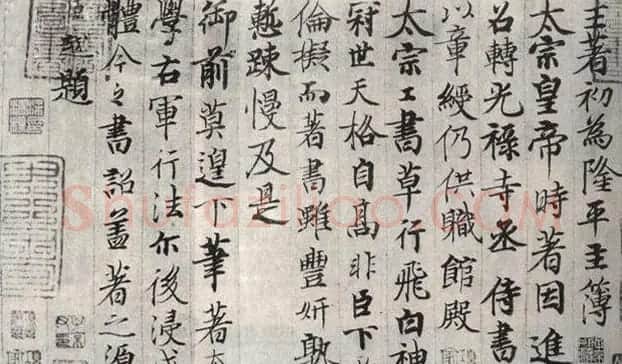 王著初為隆平主簿
太宗皇帝時著因進
召轉光祿寺丞侍書
以章綬仍供職館殿
太宗工書草行飛白神
冠世天格自高非臣下
倫擬而著書雖豐妍
慙踈慢及是
御前莫遑下筆著
學右軍行法尓後浸
體今之書詔盖著之源
題
Shufaziliao.COM